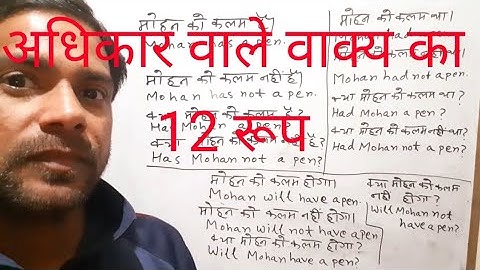 अधिकार वाले वाक्य का
12 रूप
मोहन को कलम है।
Mohan has a pen.
मोहन को कलम नहीं है।
Mohan has not a pen.
क्या मोहन को कलम है?
Has Mohan a pen?
क्या मोहन को कलम नहीं है?
Has Mohan not a pen?
मोहन को कलम था।
Mohan had a pen.
मोहन को कलम नहीं था।
Mohan had not a pen.
क्या मोहन को कलम था?
Had Mohan a pen?
क्या मोहन को कलम नहीं था?
Had Mohan not a pen?
मोहन को कलम होगा।
Mohan will have a pen.
मोहन को कलम नहीं होगा।
Mohan will not have a pen.
क्या मोहन को कलम होगा?
Will Mohan have a pen?
क्या मोहन को कलम
नहीं होगा?
Will Mohan not
have a pen?